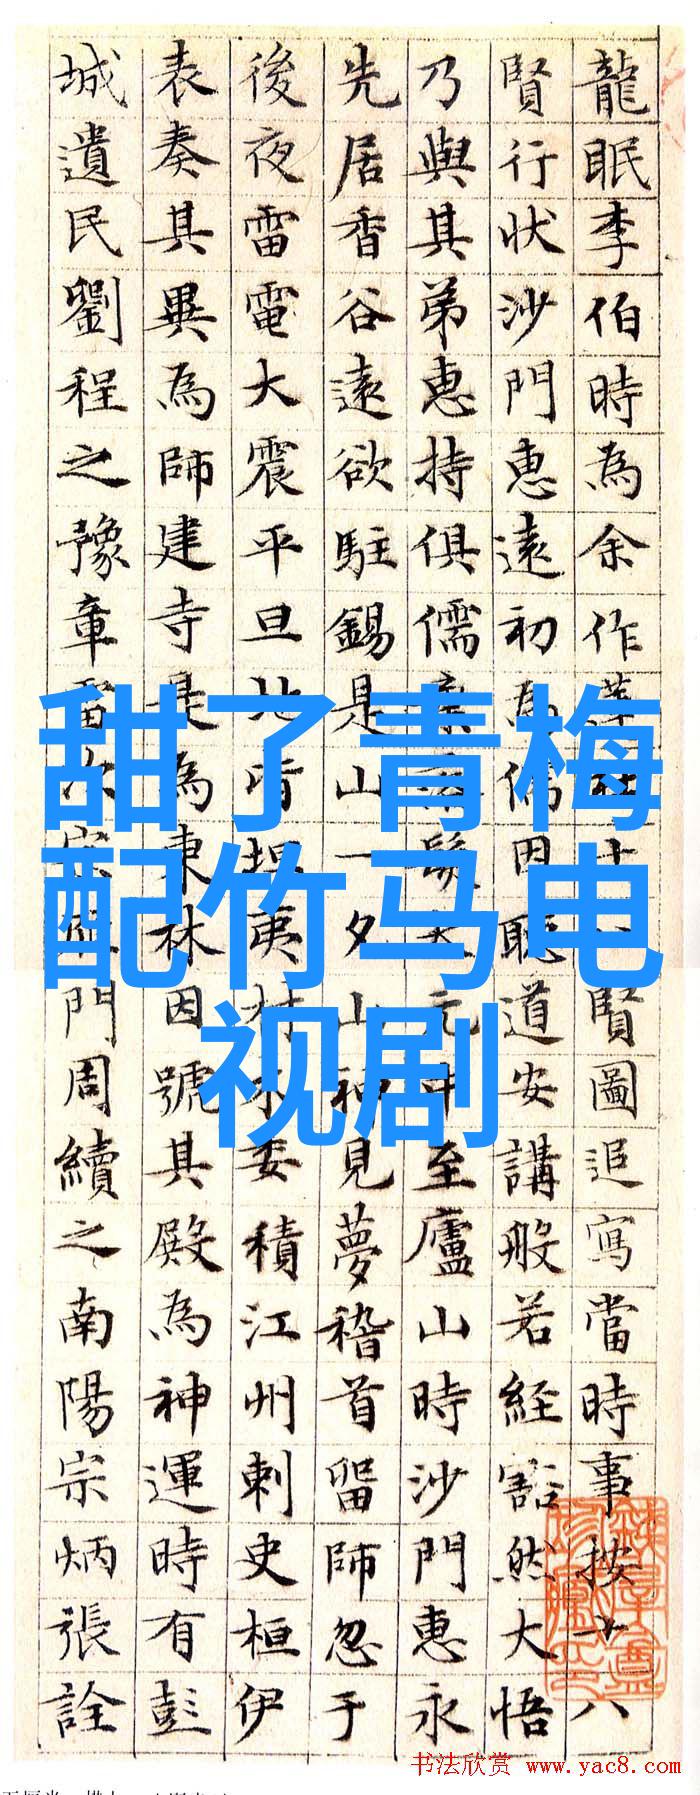 龍眠李伯時為余作蓮社十八賢圖追寫當時事按十八
賢行狀沙門惠遠初為儒因聽道安講般若経豁然大悟
乃與其弟惠持俱儒髮太元中至廬山時沙門惠永
先居香谷遠欲駐錫是山一夕山神見夢稽首留師忽于
後夜雷電大震平旦地皆坦夷材木委積江州刺史桓伊
表奏其異為師建寺是為東林因號其殿為神運時有彭
城遺民劉程之豫章雷次宗門周續之南陽宗炳張詮
甜了青梅
配竹马电
视剧
书法欣赏 www.yac8.com